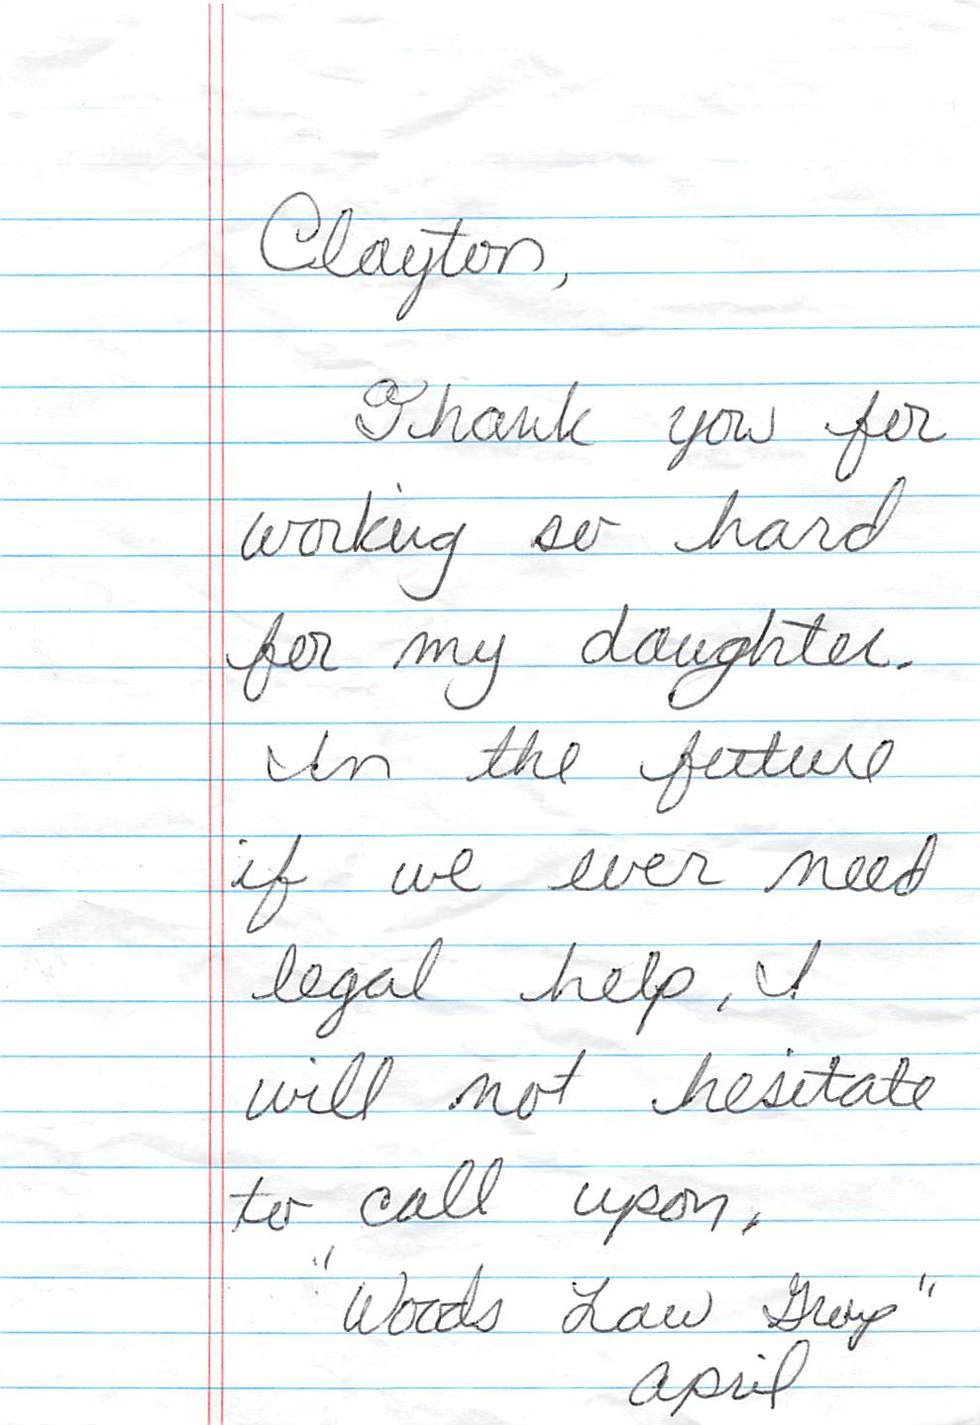 Clayton,
Thank you for
working so hard
for my daughter.
In the future
if we ever need
legal help, I
will not hesitate
to call upon,
"Woods Law Group"
April